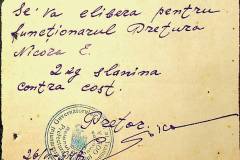 Se va elibera pentru
funcționarul Pretura
Nicora E.
2 kg slanina
contra cost.
Pretor,